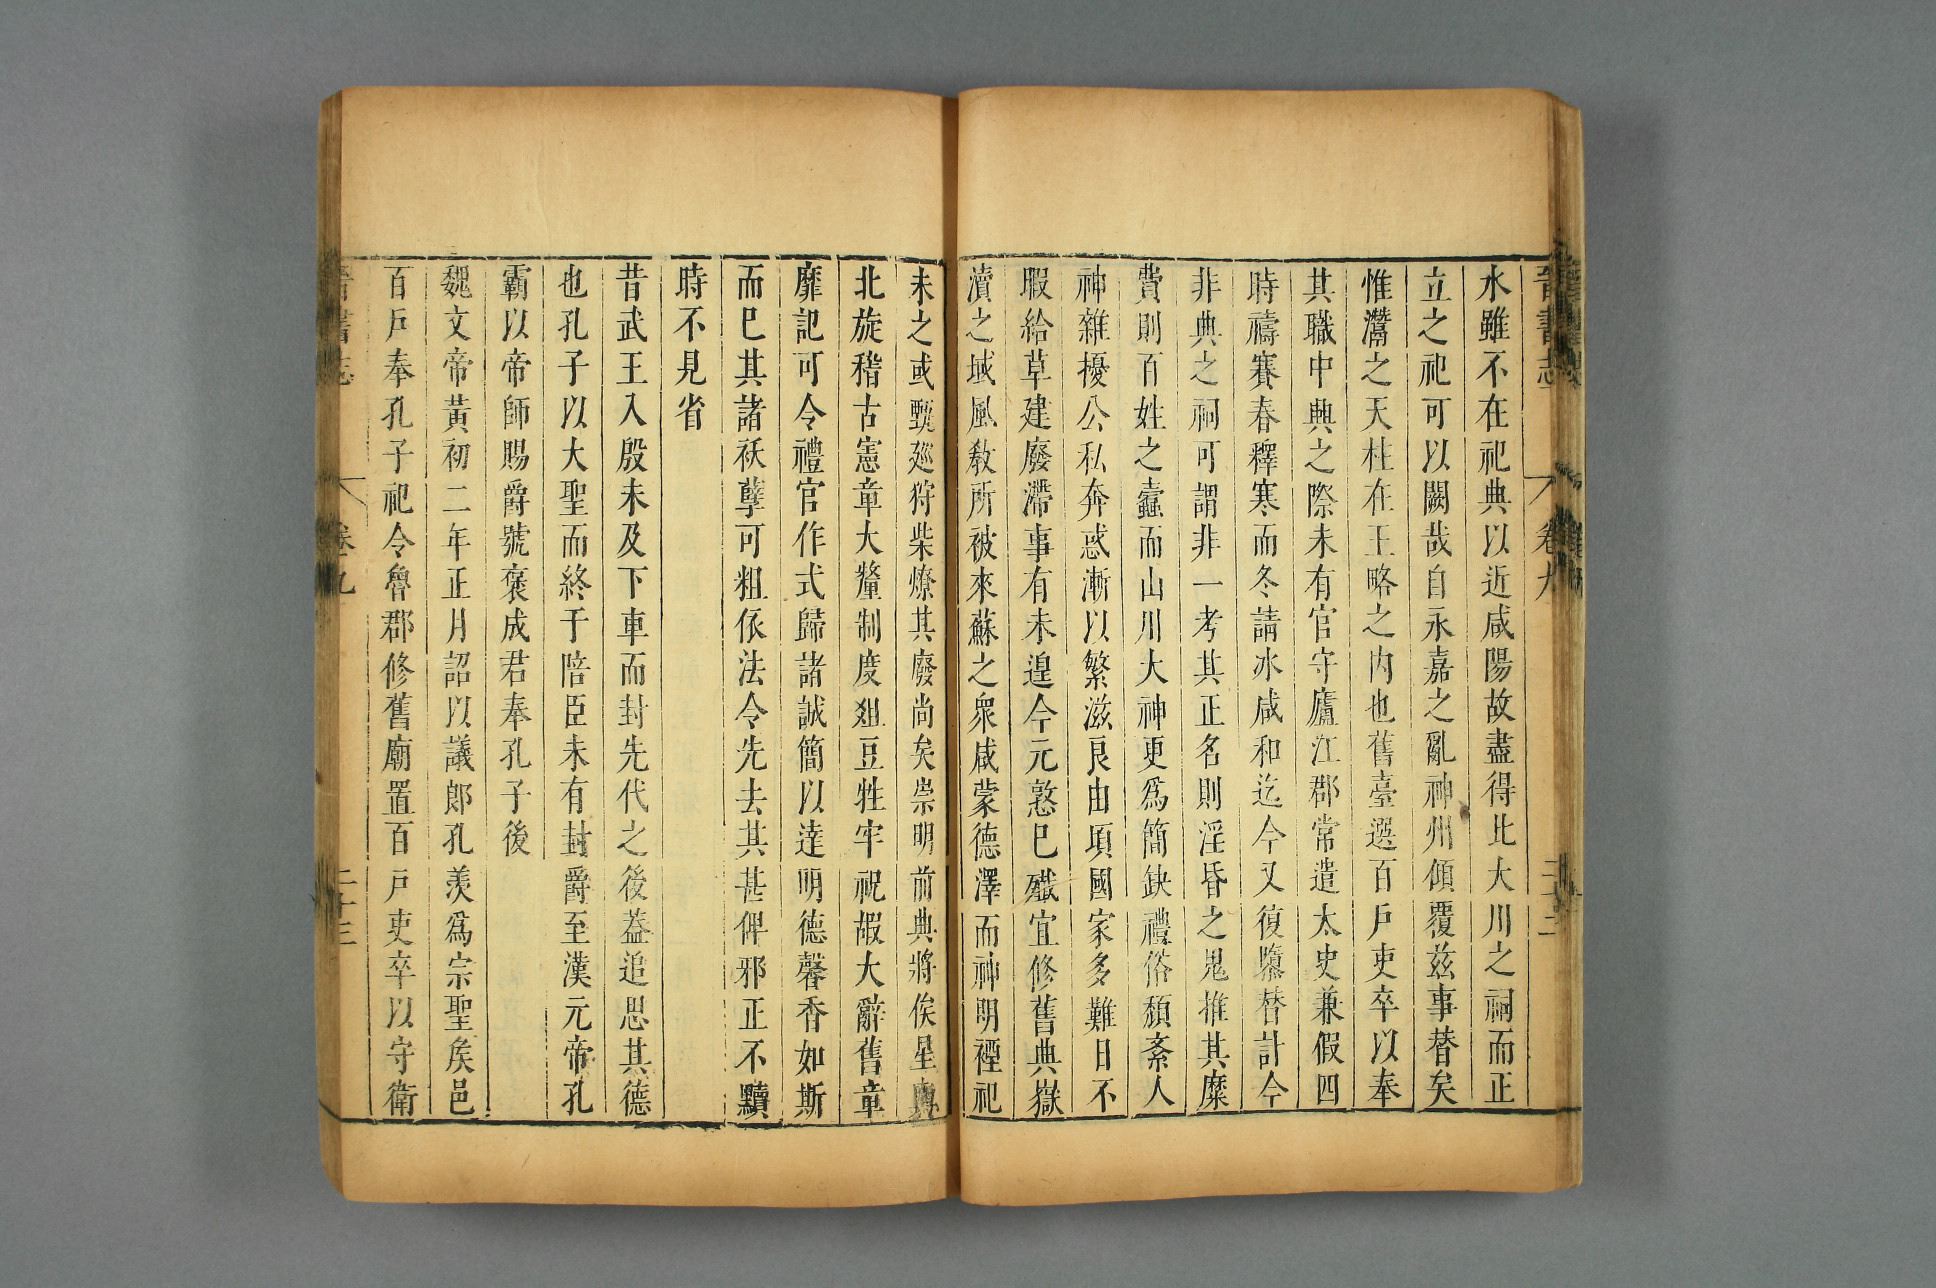 晉書志 卷九 二十二
水雖不在祀典以近咸陽故盡得比大川之祠而正
立之祀可以闕哉自永嘉之亂神州傾覆茲事替矣
惟灊之天柱在王略之内也舊臺選百戶吏卒以奉
其職中興之際未有官守廬江郡常遣太史兼假四
時禱賽春釋寒而冬請冰咸和迄今又復隳替計今
非典之祠可謂非一考其正名則淫昏之鬼推其糜
費則百姓之蠹而山川大神更爲簡缺禮俗頹紊人
神雜擾公私奔惑漸以繁滋良由頃國家多難日不
暇給草建廢滯事有未遑今元憝巳殲宜修舊典嶽
瀆之域風敎所被來蘇之衆咸蒙德澤而神明禋祀
未之或甄廵狩柴燎其廢尚矣崇明前典將俟皇輿
北旋稽古憲章大釐制度俎豆牲牢祝嘏大辭舊章
靡記可令禮官作式歸諸誠簡以達明德馨香如斯
而巳其諸祅孽可粗依法令先去其甚俾邪正不黷
時不見省
昔武王入殷未及下車而封先代之後葢追思其德
也孔子以大聖而終于陪臣未有封爵至漢元帝孔
霸以帝師賜爵號褒成君奉孔子後
魏文帝黃初二年正月詔以議郎孔羨爲宗聖矦邑
百戶奉孔子祀令魯郡修舊廟置百戶吏卒以守衛
晉書志 卷九 二十三